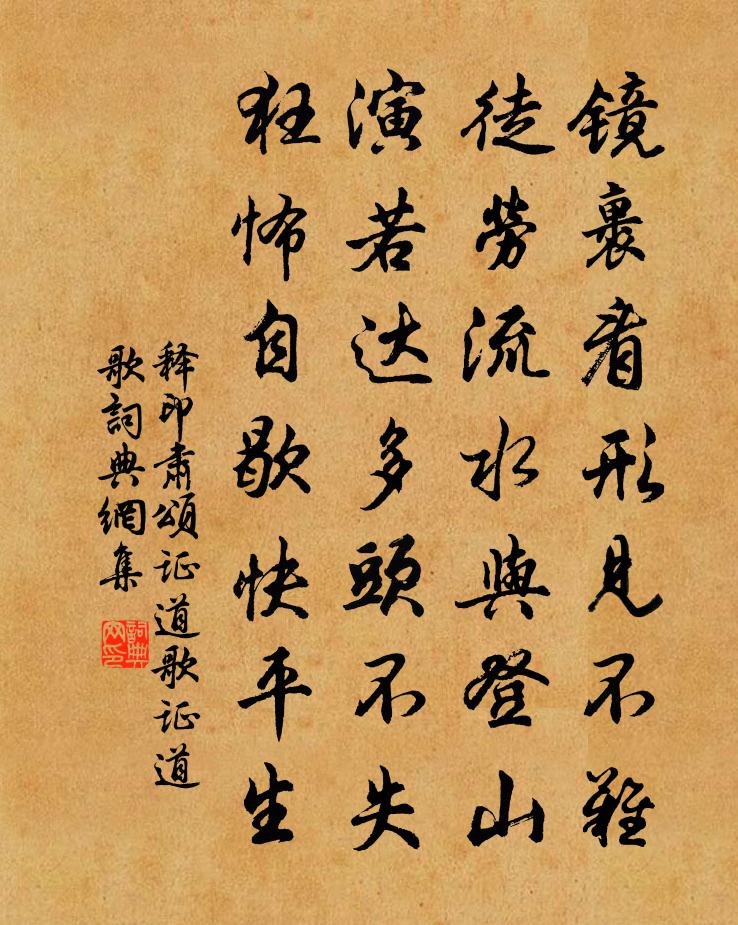 镜裏看形見不難
徒勞流水與登山
演若达多頭不失
狂怖自歇快平生
释印肃頌证道歌证道
歌詞典網集
詞典網印